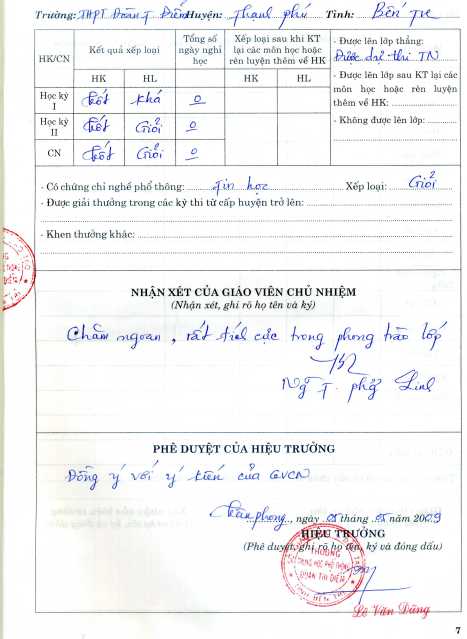 Trường: THPT Đoàn T. Điểm Huyện: Thạnh phú Tỉnh: Bến Tre
HK/CN
Kết quả xếp loại
HK HL
Tổng số ngày nghỉ học
Xếp loại sau khi KT lại các môn học hoặc rèn luyện thêm về HK
HK HL
- Được lên lớp thẳng:
Được dự thi TN
- Được lên lớp sau KT lại các môn học hoặc rèn luyện thêm về HK:
- Không được lên lớp:
Học kỳ I tốt khá 0
Học kỳ II tốt Giỏi 0
CN tốt Giỏi 0
- Có chứng chỉ nghề phổ thông: Tin học Xếp loại: Giỏi
- Được giải thưởng trong các kỳ thi từ cấp huyện trở lên:
- Khen thưởng khác:
NHẬN XÉT CỦA GIÁO VIÊN CHỦ NHIỆM
(Nhận xét, ghi rõ họ tên và ký)
Chăm ngoan, rất tích cực trong phong trào lớp
Ng T.
PHÊ DUYỆT CỦA HIỆU TRƯỞNG
Đồng ý với ý kiến của GVCN
ngày 05 tháng 05 năm 2009
HIỆU TRƯỞNG
(Phê duyệt, ghi rõ họ tên, ký và đóng dấu)
TRƯỜNG
TRUNG HỌC PHỔ THÔNG
ĐOÀN THỊ ĐIỂM
Lê Văn Dũng
7